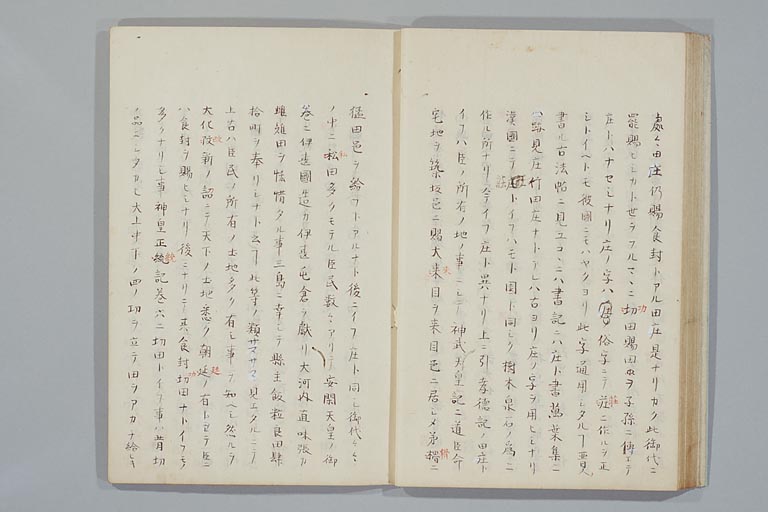 處之田庄仍賜食封トアル田庄是ナリカク此御代ニ
罷賜ヒシカト世ヲフルマヽニ切田賜田ヲ子孫ニ傳ヱテ
功
庄トハナセシナリ庄ノ字ハ俗字ニテ莊ニ作ルヲ正
莊
シトイヘトモ彼國ニモハヤクヨリ此字通用シタル
書ル古法帖ニ見ユコヽニハ書記ニハ庄ト書萬葉集ニ
跡見庄竹田庄ナトアレハ古ヨリ庄ノ字ヲ用ヒシナリ
漢國ニテ庄トイフハモト園ト同シク樹木泉石ノ為ニ
莊
作ル所ナリ今イフ庄ト異ナリ上ニ引孝德記ノ田庄ト
イフハ臣ノ所有ノ地ノ事ニシテ神武天皇記ニ道臣命
宅地ヲ築坂邑ニ賜大来目ヲ来目邑ニ居シメ弟猾ニ
猾
猛田邑ヲ給フトアルナト後ニイフ庄ト同シ御代々々
ノ中ニ松田多クモテル臣民數々アリテ安閑天皇ノ御
私
卷ニ伊甚國造カ伊甚屯倉ヲ獻リ大河内直味張カ
雌雉田ヲ恡惜タル事三島ニ幸シテ縣主飯粒良田肆
拾町ヲ奉リシナト云フ此等ノ類サマサマ見エタルニテ
上古ハ臣民ノ所有ノ土地多ク有シ事ヲ知ヘシ然ルヲ
大化改新ノ詔ニテ天下ノ土地悉ク朝廷ノ有トセラレ臣ニ
改
廷
ハ食封ヲ賜ヒシナリ後ニナリテ其食封切田ナトイフモノ
功
多クナリシ事神皇正統記卷六ニ切田トイフ事ハ昔切
統
ノ品ニシタカヒ大上中下ノ四ノ功ヲ立テ田ヲアカチ給ヒキ